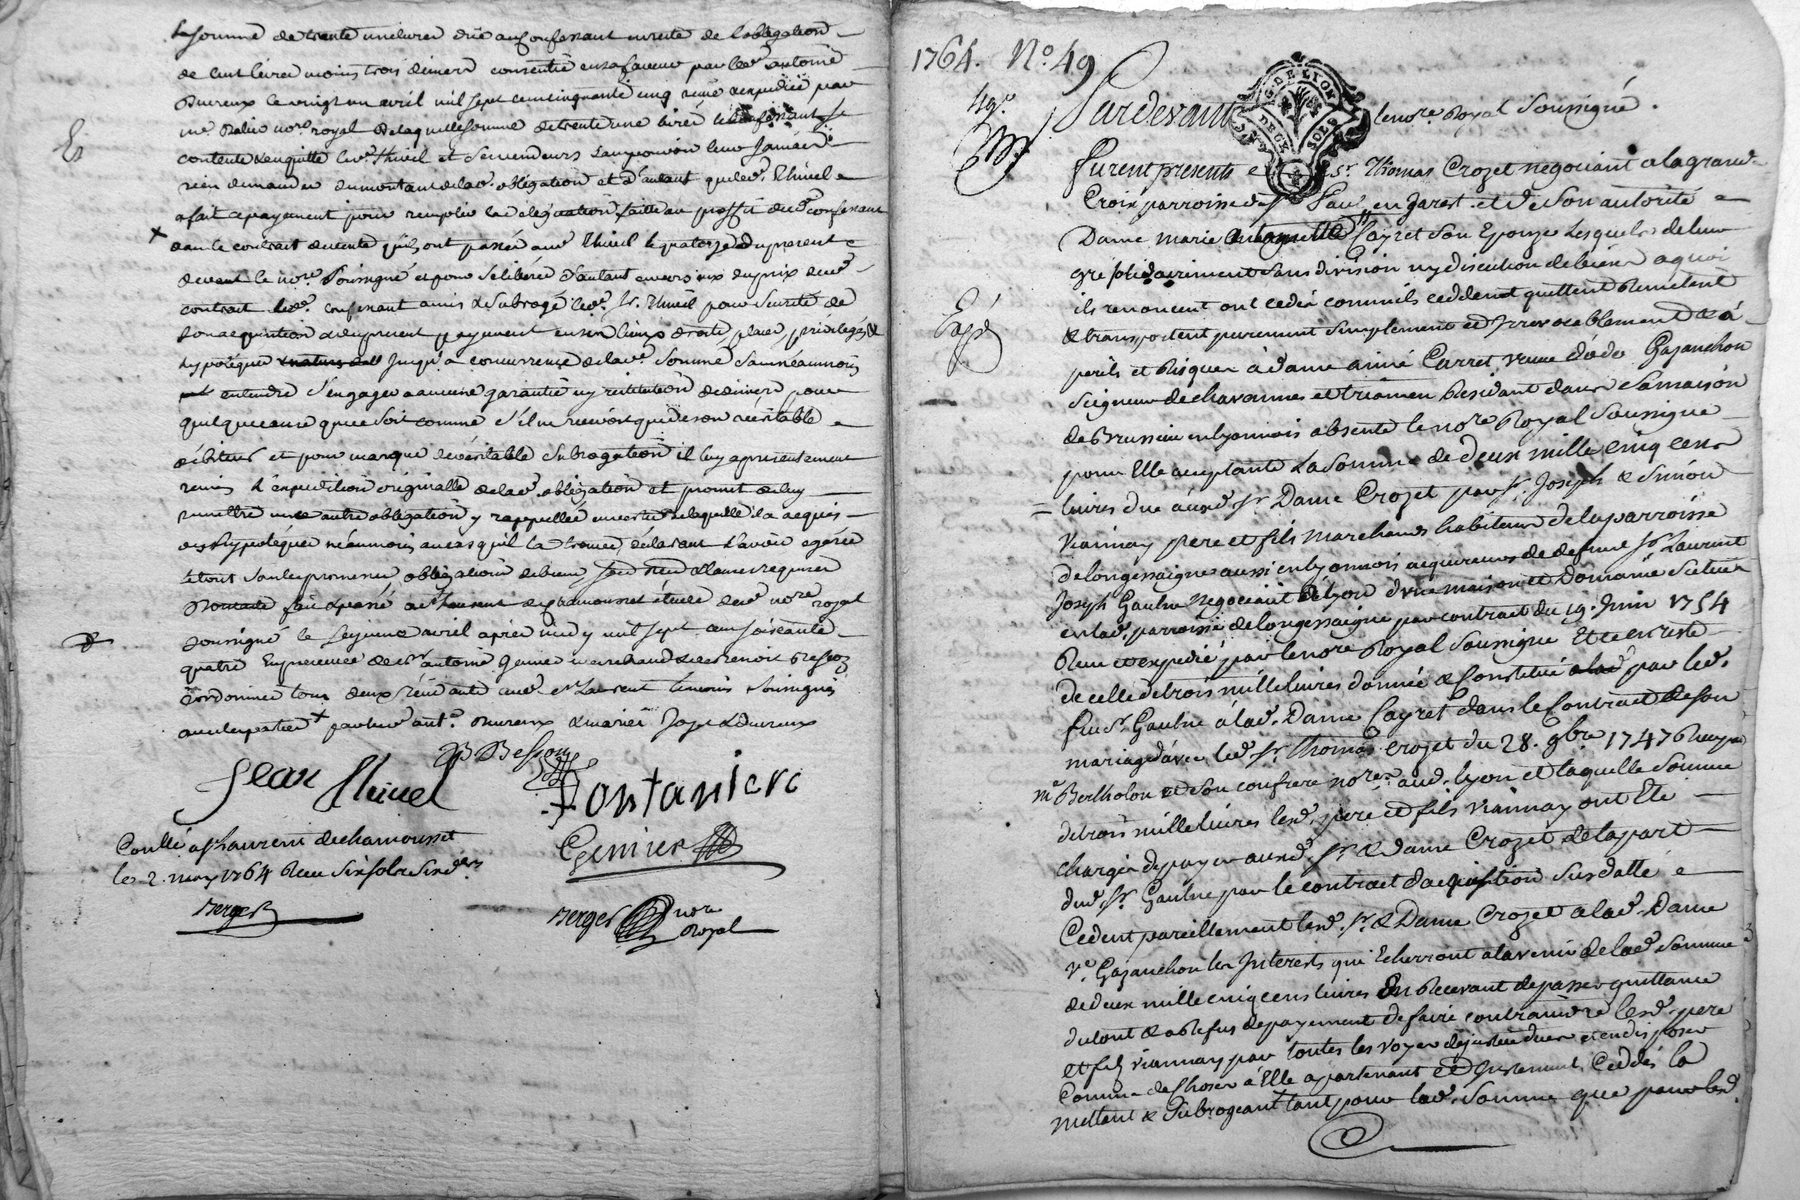 la somme de trente une livres due au confessant en reste de l'obligation
de cent livres moins trois deniers consentie en sa faveur par led. antoine
Dureux le vingt un avril mil sept cent cinquante cinq reçue & expediée par
me notre royal de laquelle somme de trente une livres le confessant se
contente & en quitte led. Thivel et ses vendeurs sans pouvoir leur jamais
rien demander du montant de lad. obligation et d'autant que led. Thivel
a fait ce payement pour remplir la délégation faitte au proffit dud. confessant
dans le contrat de vente qu'ils ont passé aud. Thivel le quatorze du present
devant le nore. soussigné et pour se libérer d'autant envers eux du prix dud.
contrat led. confessant a mis & subrogé led. sr. Thivel pour seureté de
son acquisition & du present payement en ses lieux droits, place, privilèges &
hypotèque jusqu'à concurrence de lad. somme sans néanmoins
entendre s'engager a aucune garantie ny restitution de deniers pour
quelque cause que ce soit comme s'il ne recevoit que de son véritable
débiteur et pour marque de véritable subrogation il luy a présentement
remis l'expédition originalle de lad. obligation et promet de luy
remettre une autre obligation y rappellée
hypotéquée néanmoins au cas qu'il la trouve, déclarant l'avoir égarée
le tout sous les promesses, obligations de biens,
fait & passé a st Laurent de chamousset étude dud. nore royal
soussigné le seizieme avril après midy mil sept cent soixante
quatre En presence de sr antoine Genier marchand & de Benoit Besson
cordonnier tous deux résidants aud. st Laurent temoins soussignés
avec les parties + par led. ant.e Dureux & marie Dureux
Et
+
B Besson
Jean thivel
Fontaniere
Conllé a st Laurent de chamousset
le 2. may 1764 Reçu six sols six drs
Genier
Berger
Berger nore
Royal
1764. No. 49
49e
Pardevant le nore Royal soussigné.
G. DE LYON
DE GX SOLS
furent presents sr. Thomas Crozet negociant a la grand-
Croix parroisse de st Paul en Jarest et de son autorité
Dame marie antoinette Cayret son Epouze Lesquels de leur
gré solidairement sans division ny discution de biens a quoi
ils renoncent ont cédé comme ils cèddent quittent Remettent
Exp
& transportent purement simplement et Irrevocablement & à
perils et Risques à dame aimé Carret veuve Gazanchon
Seigneur de chavannes et triamen Residant dans sa maison
de Brussieu en lyonnois absente le nore Royal soussigné
pour Elle acceptante La somme de deux mille cinq cens
livres due auxd. sr. Dame Crozet par sr. Joseph & simon
viannay pere et fils marchands habitans de la parroisse
de longessaigne aussi en lyonnois acquereurs de deffunt sr. Laurent
Joseph Gaulne Negociant de lyon d'une maison et Domaine scitués
en lad. parroisse de longessaigne par contract du 19. Juin 1754
Reçu et expedié par le nore Royal soussigné Et ce en reste
de celle de trois mille livres donnée & Constitué par led.
feu sr. Gaulne à lad. Dame Cayret dans le Contract de son
mariage avec led. sr. Thomas crozet du 28. 9bre 1747 Reçu par
me Bertholon et son confrere nores. aud. lyon et laquelle somme
de trois mille livres lesd. pere et fils viannay ont Eté
chargés de payer auxd. sr. & Dame Crozet de la part
dud. sr. Gaulne par le contract d'acquisition susdatté
Cedent pareillement lesd. sr. & Dame Crozet a lad. Dame
ve. Gazanchon les Interests qui Echerront a l'avenir de lad. somme
de deux mille cinq cens livres En Recevant de passer quittance
du tout & a Refus de payement de faire contraindre lesd. pere
et fils viannay par toutes les voyes de justice dues et en disposer
Comme de choses à Elle apartenant et Justement Ceddés la
mettant & Subrogeant tant pour lad. somme que pour lesd.